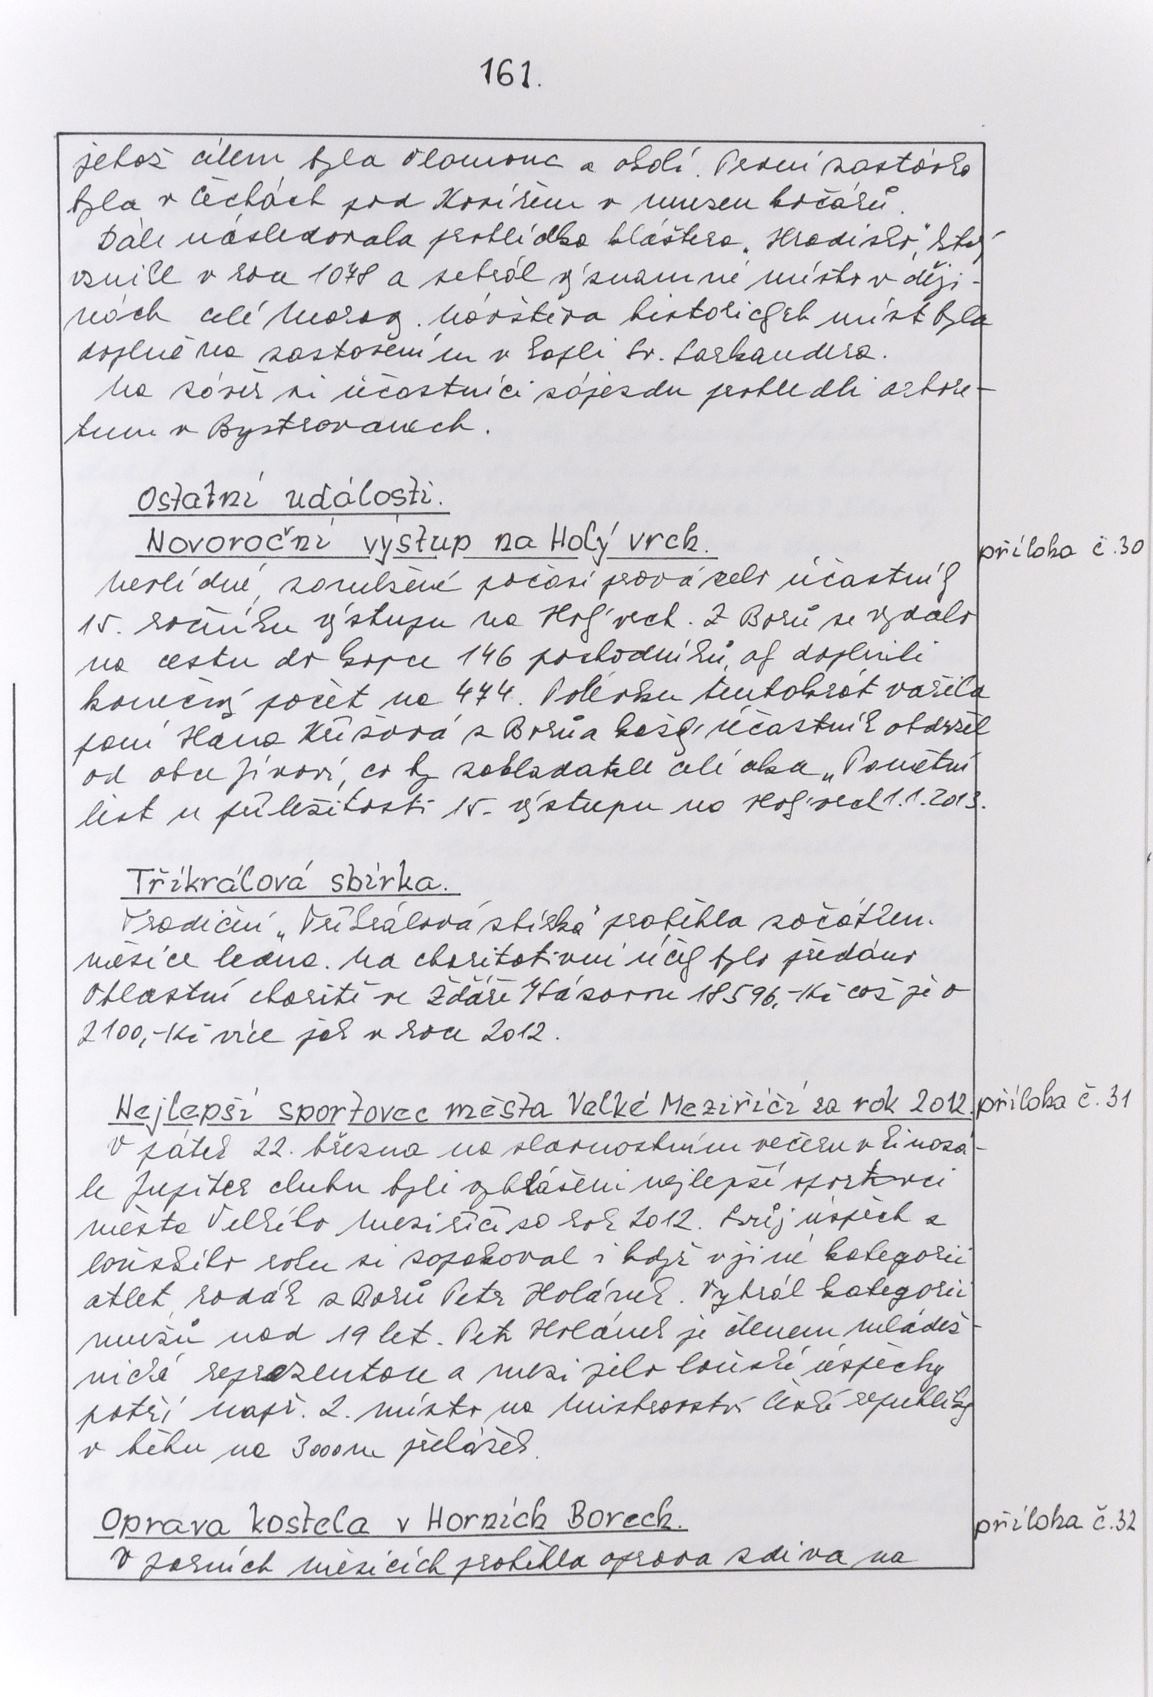 161.
jehož cílem byla Olomouc a okolí. První zastávka
byla v Čechách pod Kosířem v museu kočárů.
Dále následovala prohlídka kláštera „Hradisko", který
vznikl v roce 1078 a sehrál významné místo v ději-
nách celé Moravy. Návštěva historických míst byla
doplněna zastavením v kapli sv. Sarkandera.
Na závěr si účastníci zájezdu prohlédli arbore-
tum v Bystrovanech.
Ostatní události.
Novoroční výstup na Holý vrch.
příloha č.30
Nevlídné, zamlžené počasí provázelo účastníky
15. ročníku výstupu na Holý vrch. Z Borů se vydalo
na cestu do kopce 146 pochodníků, aby doplnili
konečný počet na 474. Polévku tentokrát vařila
paní Hana Křížová z Borů a každý účastník obdržel
od obce Jívoví, co by zakladatele celé akce „Pamětní
list u příležitosti 15. výstupu na Holý vrch 1.1.2013.
Tříkrálová sbírka.
Tradiční „Tříkrálová sbírka" proběhla začátkem
měsíce ledna. Na charitativní účely bylo předáno
Oblastní charitě ve Žďáře n/Sázavou 18596,-Kč což je o
2100,-Kč více jak v roce 2012.
Nejlepší sportovec města Velké Meziříčí za rok 2012.
příloha č.31
V pátek 22. března na slavnostním večeru v kinosá-
le Jupiter clubu byli vyhlášeni nejlepší sportovci
města Velkého Meziříčí za rok 2012. Svůj úspěch z
loňského roku si zopakoval i když v jiné kategorii
atlet, rodák z Borů Petr Holánek. Vyhrál kategorii
mužů nad 19 let. Petr Holánek je členem mládež-
nické reprezentace a mezi jeho loňské úspěchy
patří např. 2. místo na mistrovství České republiky
v běhu na 3000m překážek.
Oprava kostela v Horních Borech.
příloha č.32
V jarních měsících proběhla oprava zdiva na